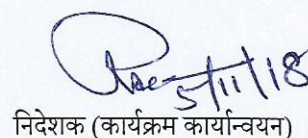 5/11/18
निदेशक (कार्यक्रम कार्यान्वयन)